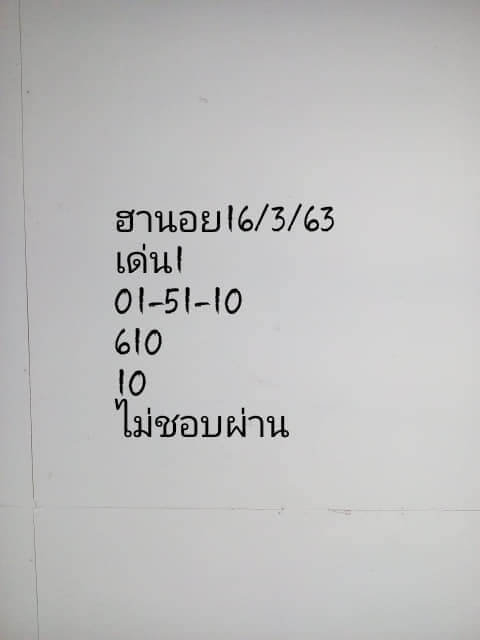 ฮานอย16/3/63
เด่น1
01-51-10
610
10
ไม่ชอบผ่าน